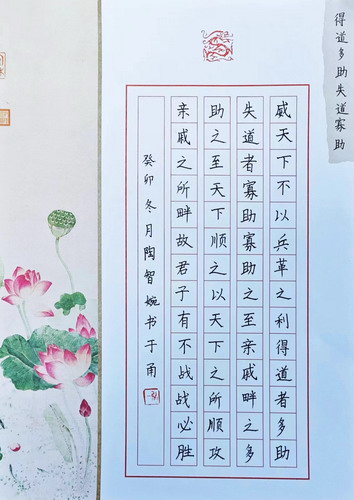 得道多助失道寡助
威天下不以兵革之利得道者多助
失道者寡助寡助之至亲戚畔之多
助之至天下顺之以天下之所顺攻
亲戚之所畔故君子有不战战必胜
癸卯冬月陶智婉书于甬